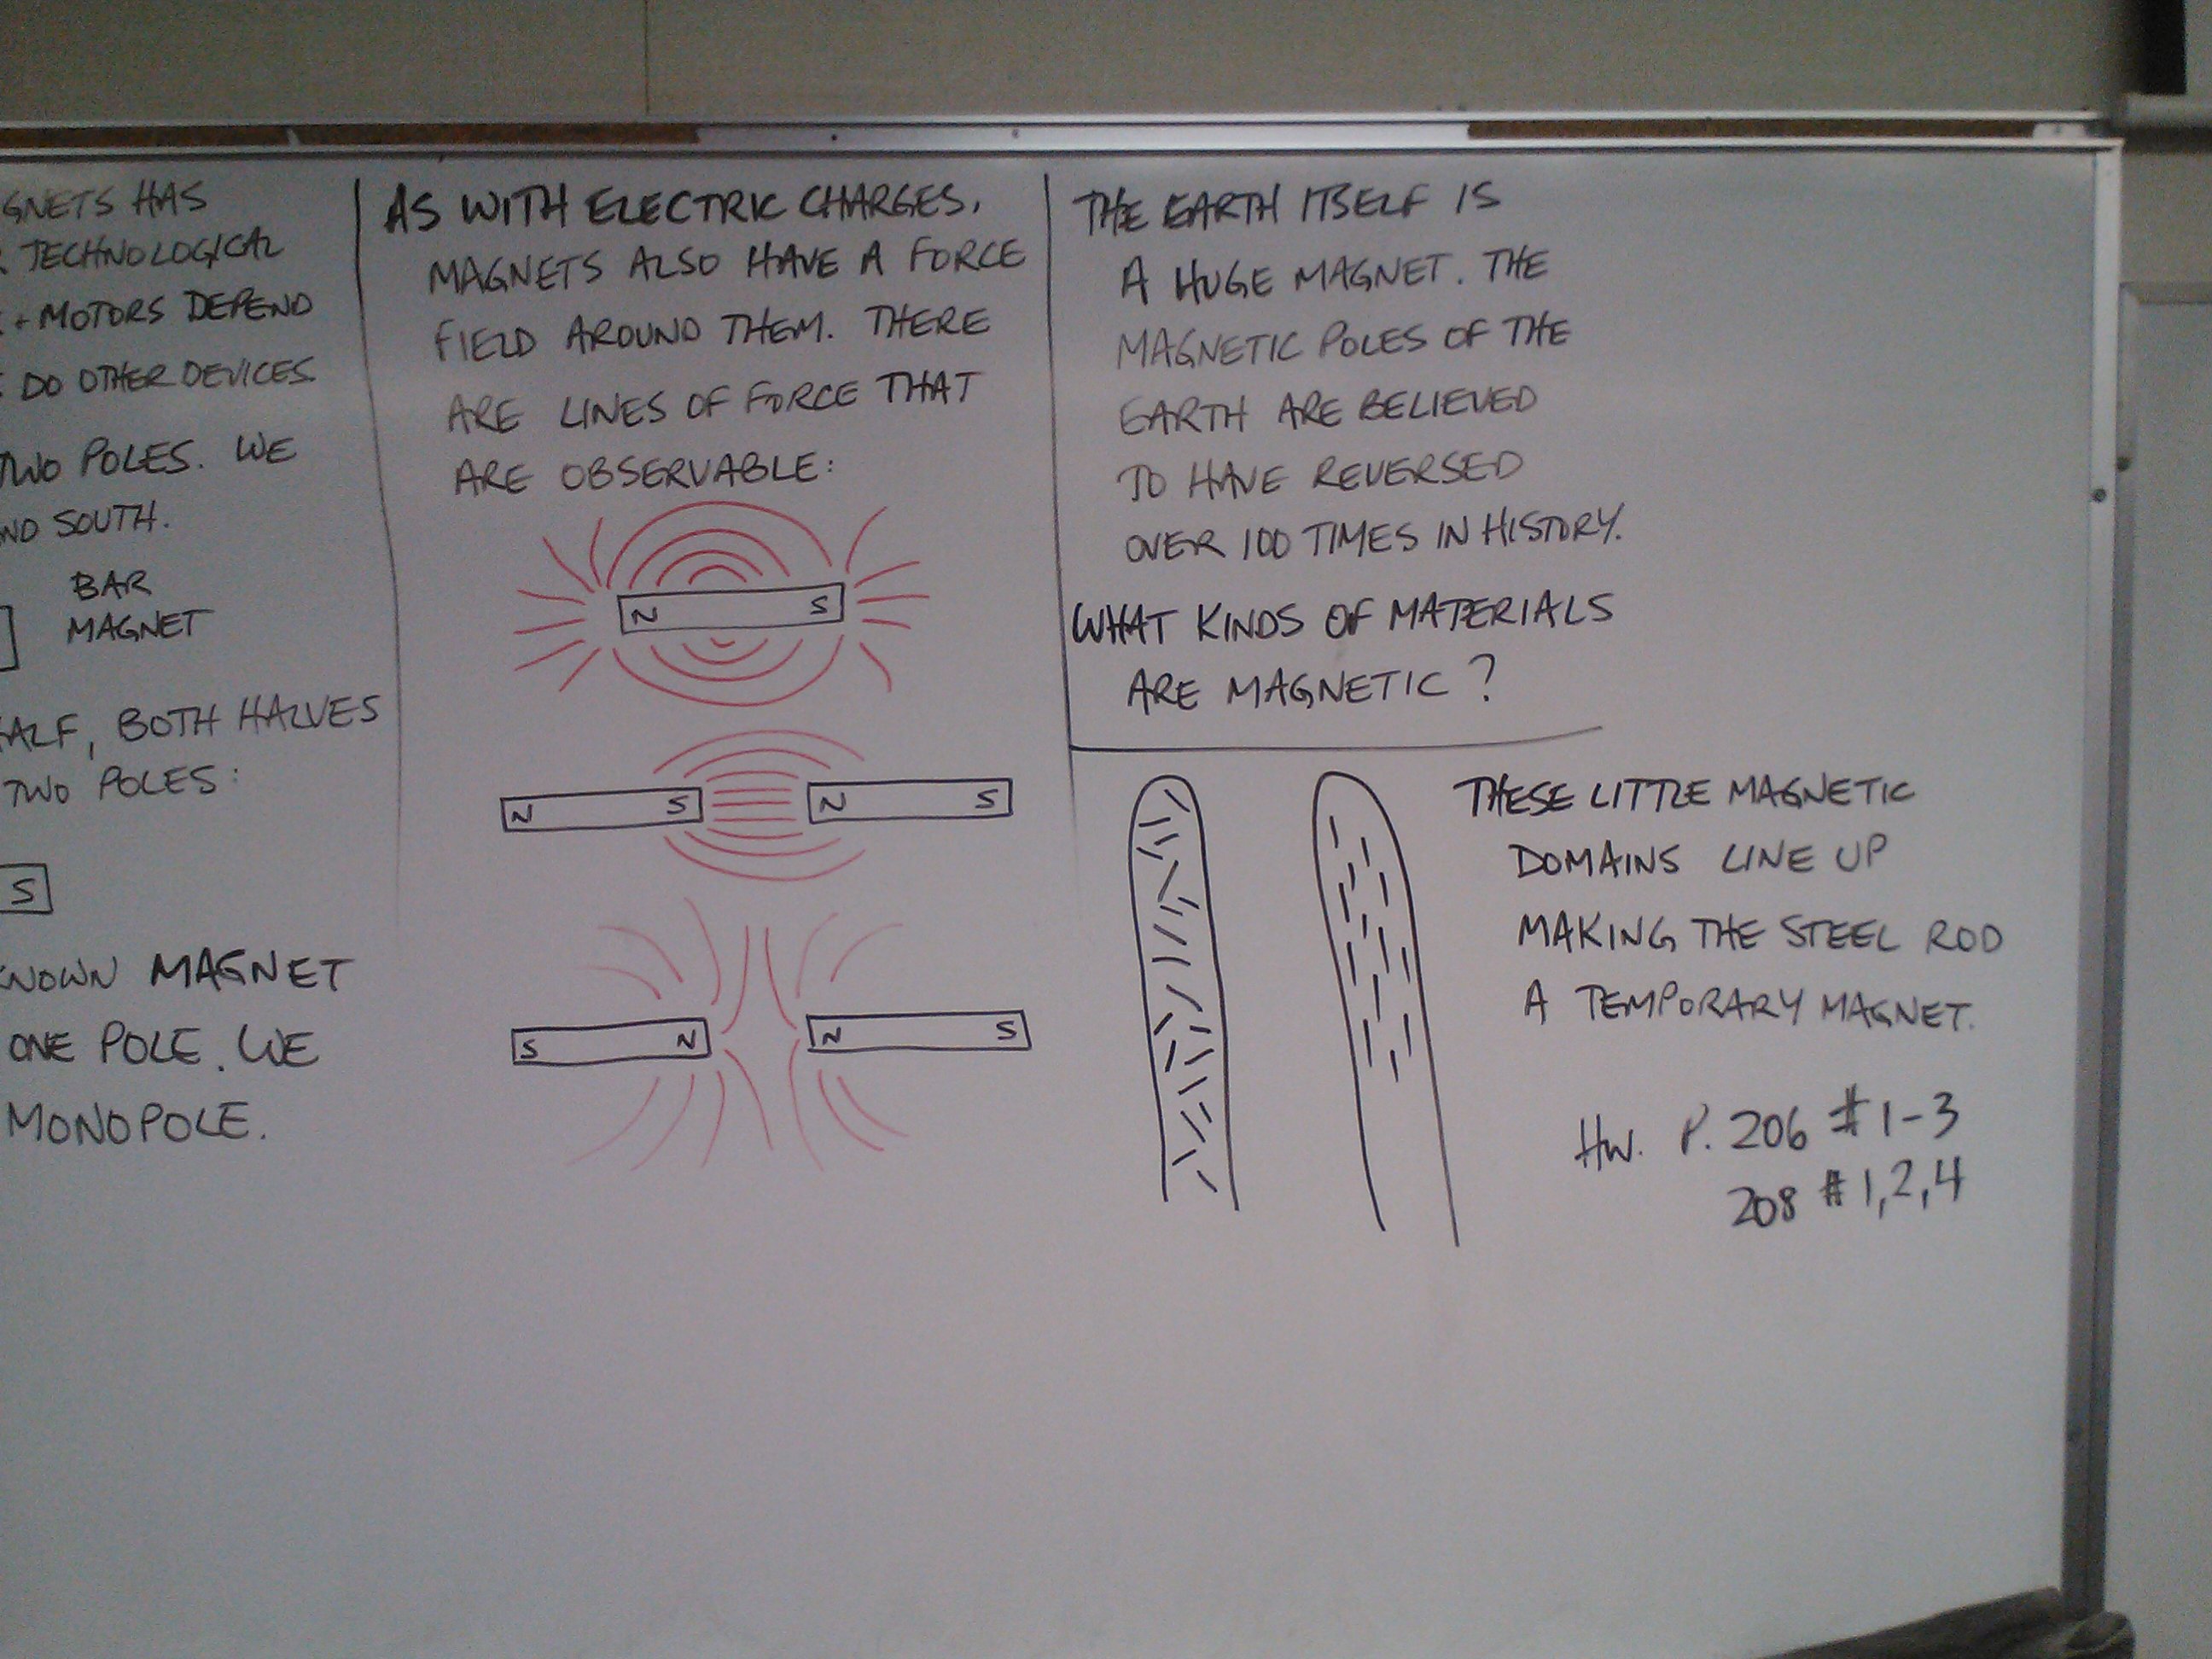 GNETS HAS
TECHNOLOGICAL
+ MOTORS DEPEND
DO OTHER DEVICES
TWO POLES. WE
ND SOUTH.
BAR
MAGNET
HALF, BOTH HALVES
TWO POLES:
S
KNOWN MAGNET
ONE POLE. WE
MONOPOLE.
AS WITH ELECTRIC CHARGES,
MAGNETS ALSO HAVE A FORCE
FIELD AROUND THEM. THERE
ARE LINES OF FORCE THAT
ARE OBSERVABLE:
N S
N S N S
S N N S
THE EARTH ITSELF IS
A HUGE MAGNET. THE
MAGNETIC POLES OF THE
EARTH ARE BELIEVED
TO HAVE REVERSED
OVER 100 TIMES IN HISTORY.
WHAT KINDS OF MATERIALS
ARE MAGNETIC?
THESE LITTLE MAGNETIC
DOMAINS LINE UP
MAKING THE STEEL ROD
A TEMPORARY MAGNET.
HW. P. 206 # 1-3
208 # 1,2,4